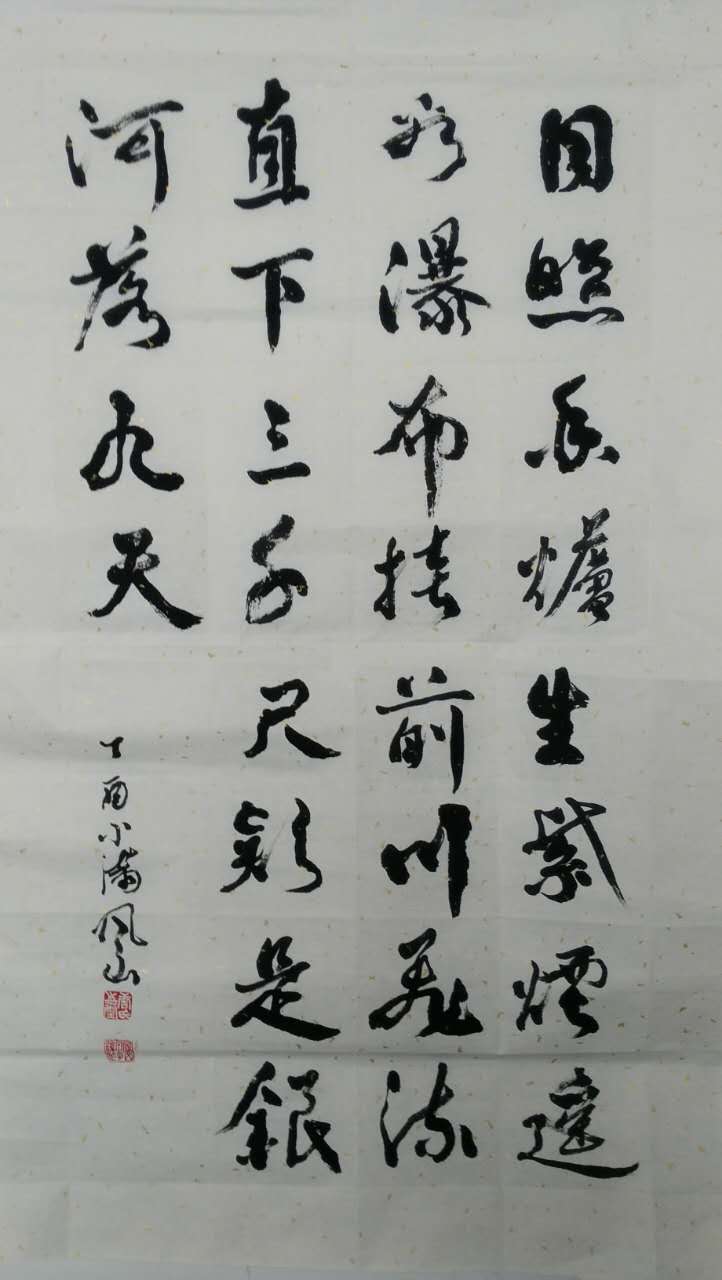 日照香爐生紫煙遥
看瀑布挂前川飛流
直下三千尺疑是銀
河落九天
丁酉小滿凤山